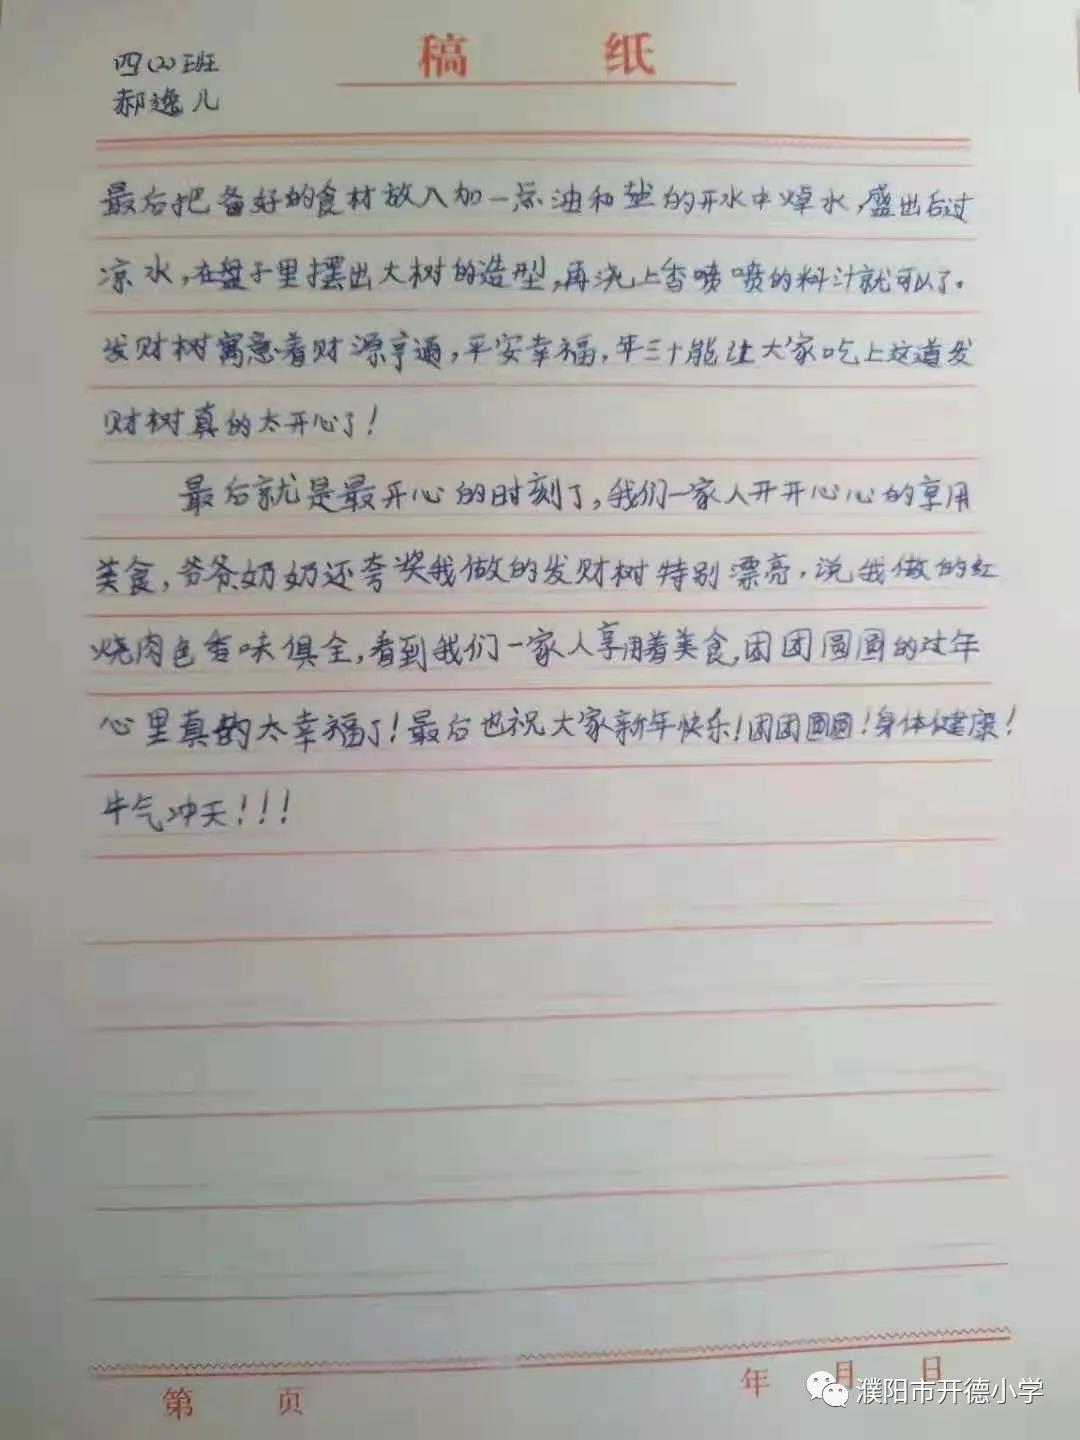 稿 纸
四(2)班
郝逸儿
最后把备好的食材放入加一点油和盐的开水中焯水,盛出后过
凉水,在盘子里摆出大树的造型,再浇上香喷喷的料汁就可以了。
发财树寓意着财源亨通,平安幸福,年三十能让大家吃上这道发
财树真的太开心了!
最后就是最开心的时刻了,我们一家人开开心心的享用
美食,爷爷奶奶还夸奖我做的发财树特别漂亮,说我做的红
烧肉色香味俱全,看到我们一家人享用着美食,团团圆圆的过年
心里真的太幸福了!最后也祝大家新年快乐!团团圆圆!身体健康!
牛气冲天!!!
第 页 年 月 日
濮阳市开德小学